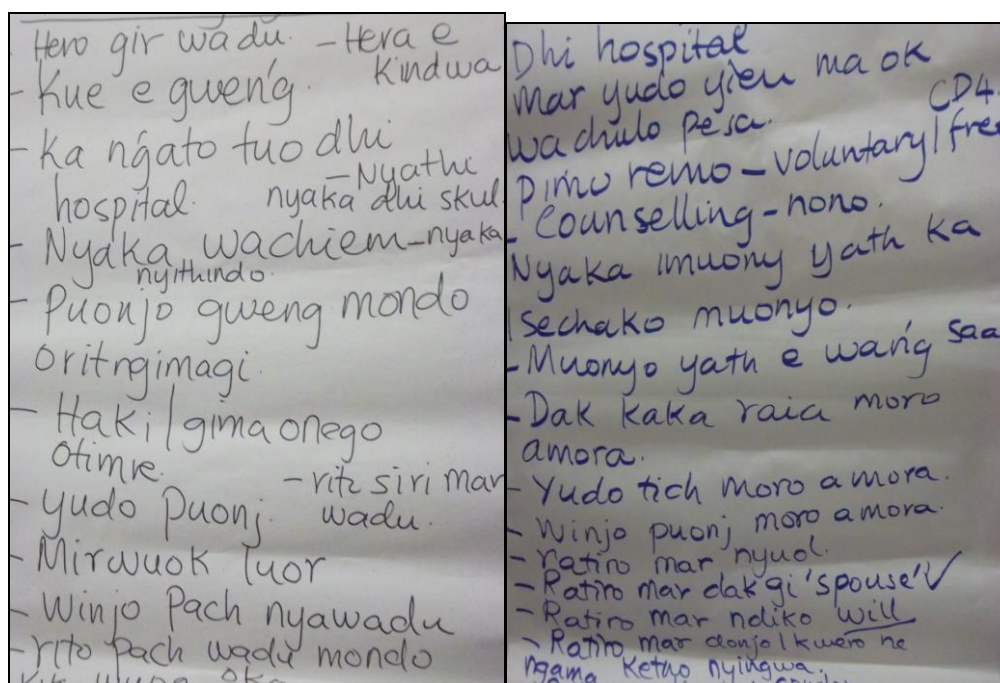 - Hero gir wadu. - Hera e
Kindwa
- Kue e gweńg.
- Ka ńgato tuo dhi
hospital.
- Nyathi
nyaka dhi skul.
- Nyaka wachiem - nyaka
nyithindo.
- Puonjo gweng mondo
oritngimagi.
- Haki / gima onego
otimre.
- riti siri mar
wadu.
- yudo puonj.
- Mirwuok luor
- Winjo Pach nyawadu
- rito pach wadu mondo
Dhi hospital
mar yudo yieu ma ok
wachulo pesa.
CD4.
Pimo remo - voluntary / free
- Counselling - nono.
Nyaka imuony yath ka
isechako muonyo.
- Muonyo yath e wańg saa
- Dak kaka raia moro
amora.
- Yudo tich moro amora.
- Winjo puonj moro amora.
- ratiro mar nyuol.
- Ratiro mar dak gi 'spouse' ✓
- Ratiro mar ndiko will
- Ratiro mar donjo / kwero ne
ngama ketho nyingwa.